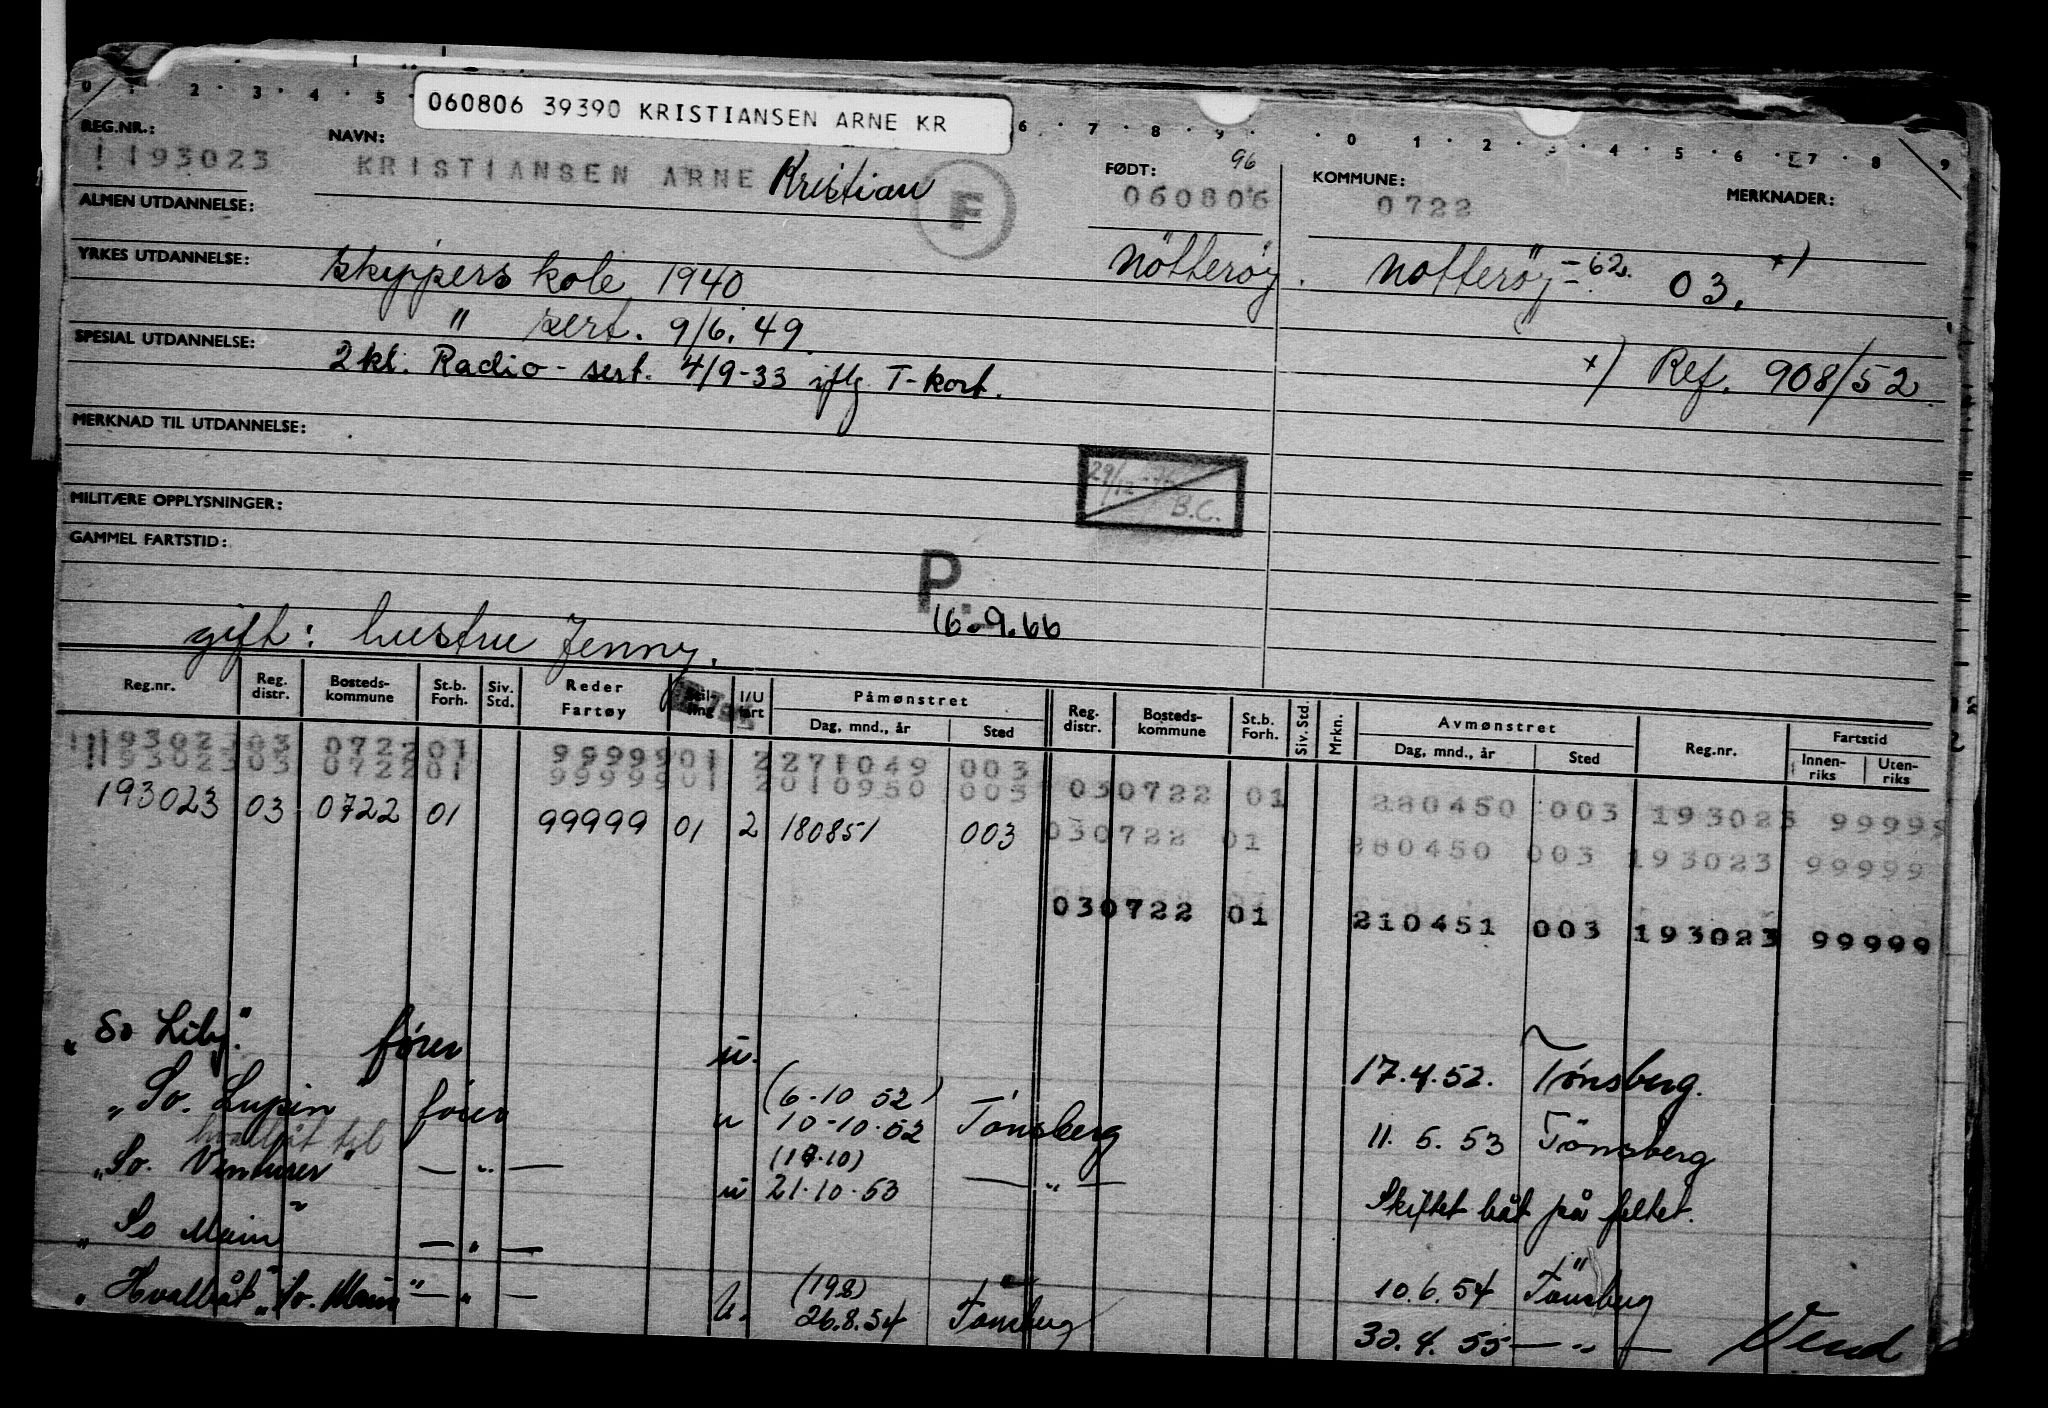 060806 39390 KRISTIANSEN ARNE KR
REG.NR.: 193023
NAVN: KRISTIANSEN ARNE Kristian
F
FØDT: 96
060806
KOMMUNE: 0722
MERKNADER:
ALMEN UTDANNELSE:
YRKES UTDANNELSE: Skippers kole 1940
Nötteröy. Nötteröy -62. 03. +)
" sert. 9/6.49
SPESIAL UTDANNELSE: 2 kl. Radio - sert. 4/9-33 iflg T-kort.
+) Ref. 908/52
MERKNAD TIL UTDANNELSE:
29/12 B.C.
MILITÆRE OPPLYSNINGER:
GAMMEL FARTSTID:
P.
16.9.66
gift: hustru Jenny.
Reg.nr. Reg. distr. Bosteds-kommune St.b. Forh. Siv. Std. Reder Fartøy Stil-ling I/U fart Påmønstret Dag, mnd., år Sted Reg. distr. Bosteds-kommune St.b. Forh. Siv. Std. Mrkn. Avmønstret Dag, mnd., år Sted Reg.nr. Fartstid Innen-riks Uten-riks
193023 03 0722 01 99999 01 2 271049 003
193023 03 0722 01 99999 01 2 010950 003 030722 01 280450 003 193023 99999
193023 03 0722 01 99999 01 2 180851 003 030722 01 280450 003 193023 99999
030722 01 210451 003 193023 99999
"So Lily." fører u. 17.4.52. Tønsberg.
"So. Lupin" fører u (6-10 52) 10-10.52 Tønsberg 11. 5. 53 Tönsberg
hvalbåt til
"So. Venturer" — " — u 21.10.53 — " — Skiftet båt på feltet.
"So Main" — " — 10.6.54 Tönsberg
"Hvalbåt" So. Main" — " — u. (19.8) 26.8.54 Tønsberg 30.4.55 — " — Vend